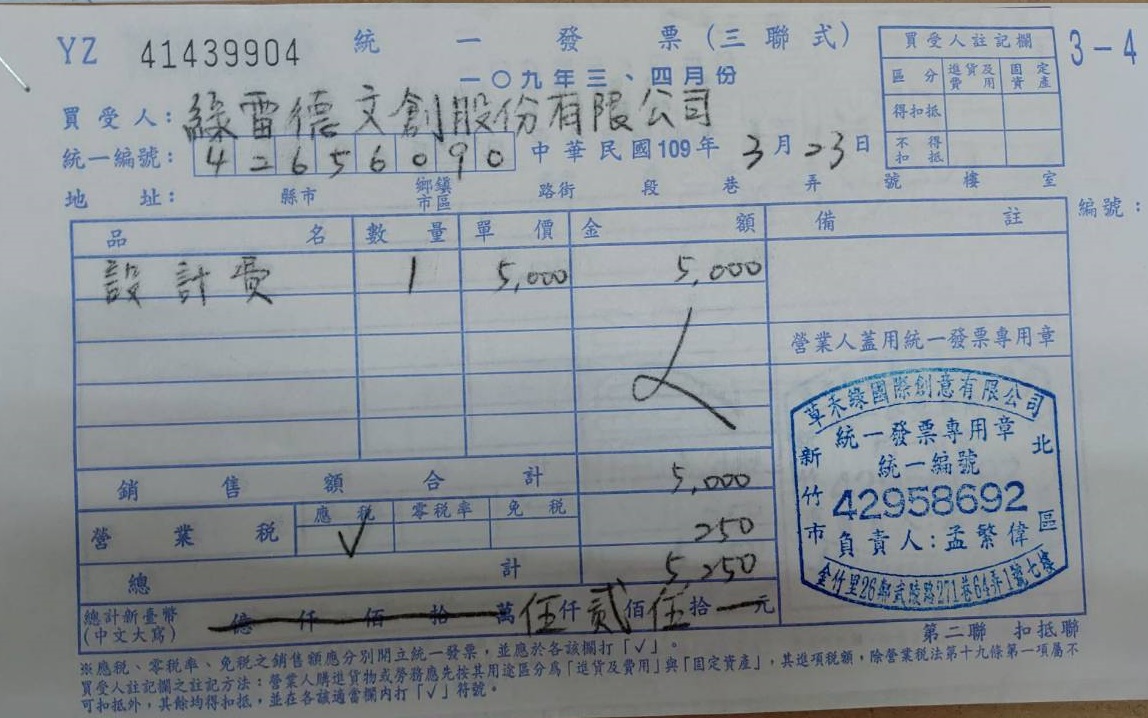 YZ 41439904 統一發票(三聯式) 3-4
一〇九年三、四月份
買受人: 綠雷德文創股份有限公司
統一編號: 42656090 中華民國109年3月23日
地址: 縣市 鄉鎮市區 路街 段 巷 弄 號 樓 室
買受人註記欄
區分 進貨及費用 固定資產
得扣抵
不得扣抵
編號:
品名 數量 單價 金額 備註
設計費 1 5,000 5,000
營業人蓋用統一發票專用章
銷售額合計 5,000
營業稅 應稅 √ 零稅率 免稅 250
總計 5,250
總計新臺幣(中文大寫) 億仟佰拾萬伍仟貳佰伍拾元
草禾緣國際創意有限公司
統一發票專用章
統一編號
42958692
負責人:孟繁偉
新竹市 北區
金竹里26鄰武陵路271巷64弄1號七樓
第二聯 扣抵聯
※應稅、零稅率、免稅之銷售額應分別開立統一發票,並應於各該欄打「√」。
買受人註記欄之註記方法:營業人購進貨物或勞務應先按其用途區分為「進貨及費用」與「固定資產」,其進項稅額,除營業稅法第十九條第一項屬不
可扣抵外,其餘均得扣抵,並在各該適當欄內打「√」符號。